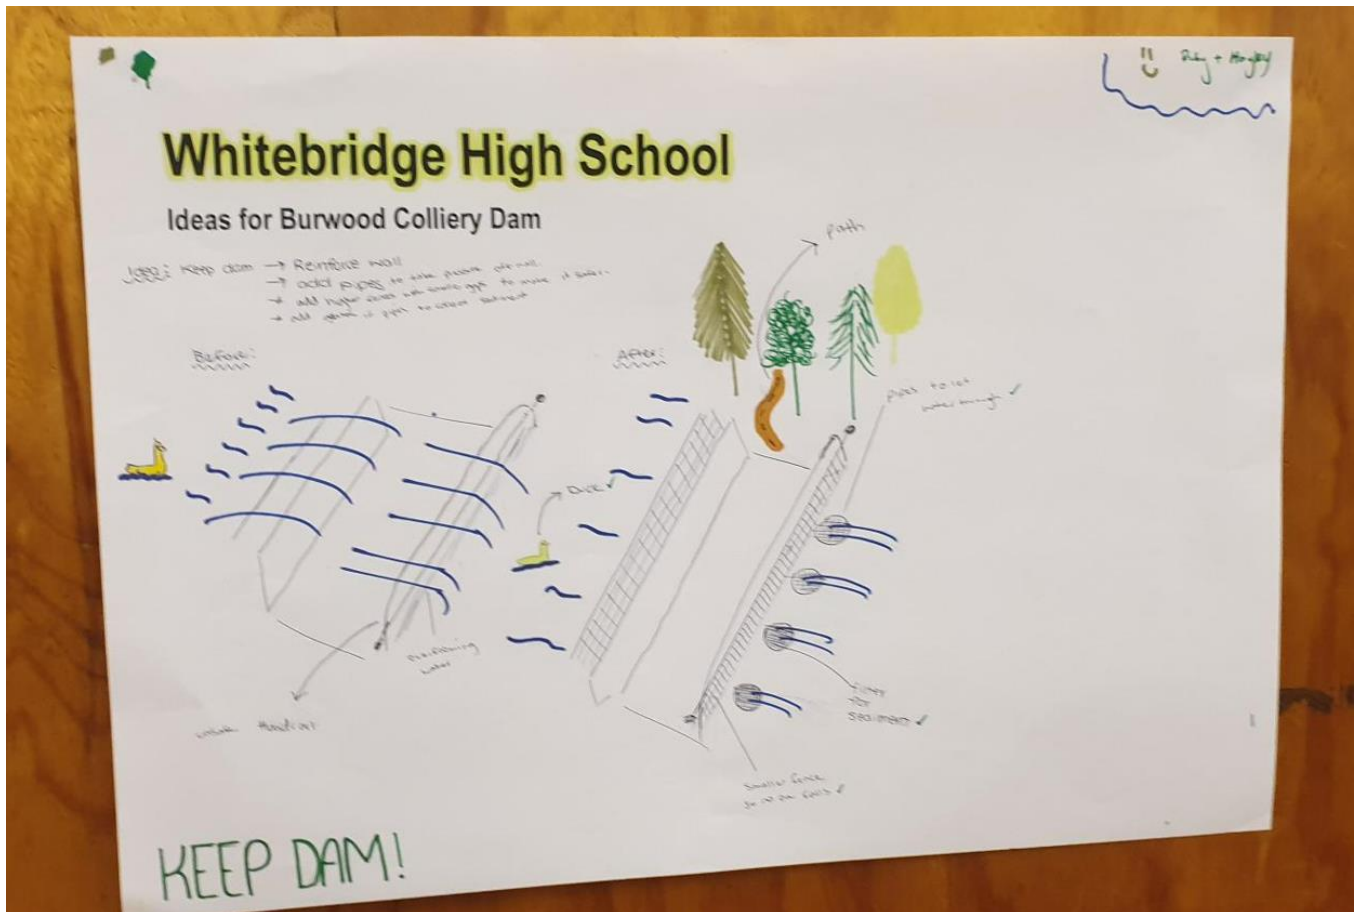 +
Whitebridge High School
Ideas for Burwood Colliery Dam
Idea: Keep dam → Reinforce wall
→ add pipes to take pressure off wall
→ add higher with small gaps to make it safer
→ add in pipes to collect sediment
path
Before:
After:
pipes to let
water through ✓
Duck ✓
overflowing
water
filter
for
sediment ✓
Handrail
smaller fence
so no one falls ✓
KEEP DAM!